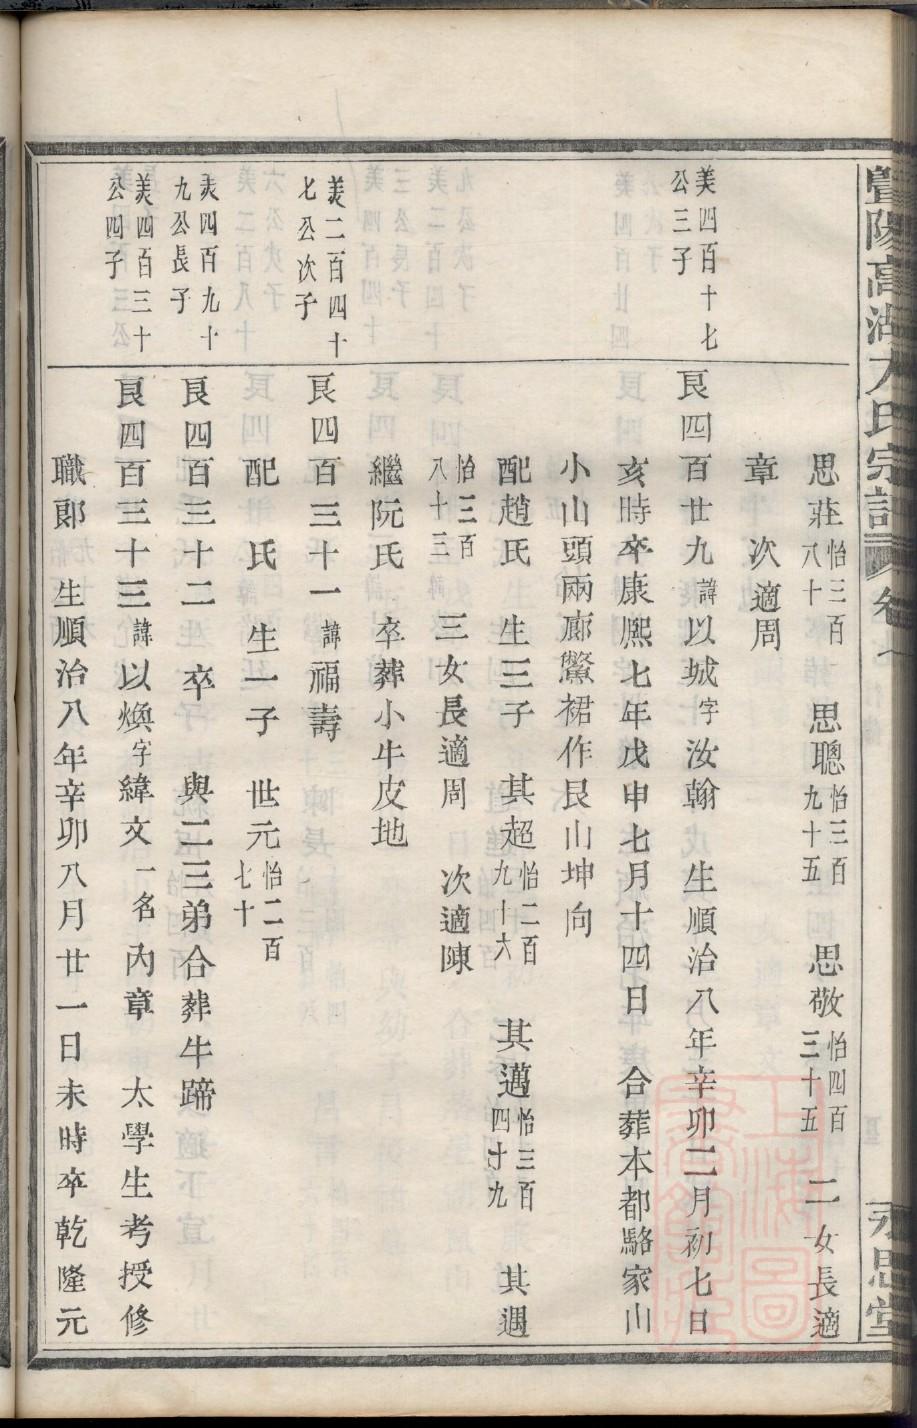 暨陽高湖 氏宗譜 卷
思莊怡三百八十 思聰怡三百九十五 思敬怡四百三十五 二女長適
章 次適周
美四百十七公三子
良四百廿九諱以城字汝翰 生順治八年辛卯二月初七日
亥時卒康熙七年戊申七月十四日 合葬本都駱家山
小山頭兩廊鱉裙作艮山坤向
配趙氏 生三子 其超怡二百九十六 其邁怡三百四十九 其週
怡三百八十三 三女長適周 次適陳
繼阮氏 卒葬小牛皮地
美二百四十七公次子
良四百三十一諱福壽
配 氏 生一子 世元怡二百七十
美四百九十九公長子
良四百三十二 卒 與二三弟合葬牛蹄
美四百三十公四子
良四百三十三諱以煥字緯文一名內章 太學生考授修
職郎 生順治八年辛卯八月廿一日未時卒乾隆元
思堂